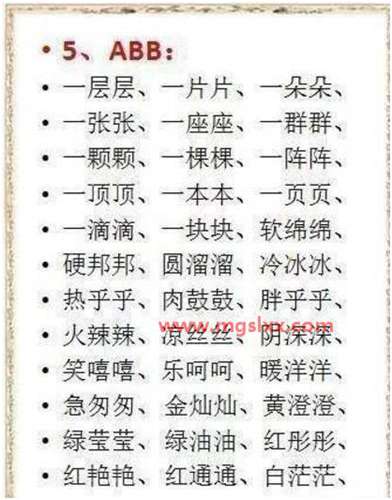 • 5、ABB：
• 一层层、一片片、一朵朵、
• 一张张、一座座、一群群、
• 一颗颗、一棵棵、一阵阵、
• 一顶顶、一本本、一页页、
• 一滴滴、一块块、软绵绵、
• 硬邦邦、圆溜溜、冷冰冰、
• 热乎乎、肉鼓鼓、胖乎乎、
www.mgslxx.com
• 火辣辣、凉丝丝、阴深深、
• 笑嘻嘻、乐呵呵、暖洋洋、
• 急匆匆、金灿灿、黄澄澄、
• 绿莹莹、绿油油、红彤彤、
• 红艳艳、红通通、白茫茫、